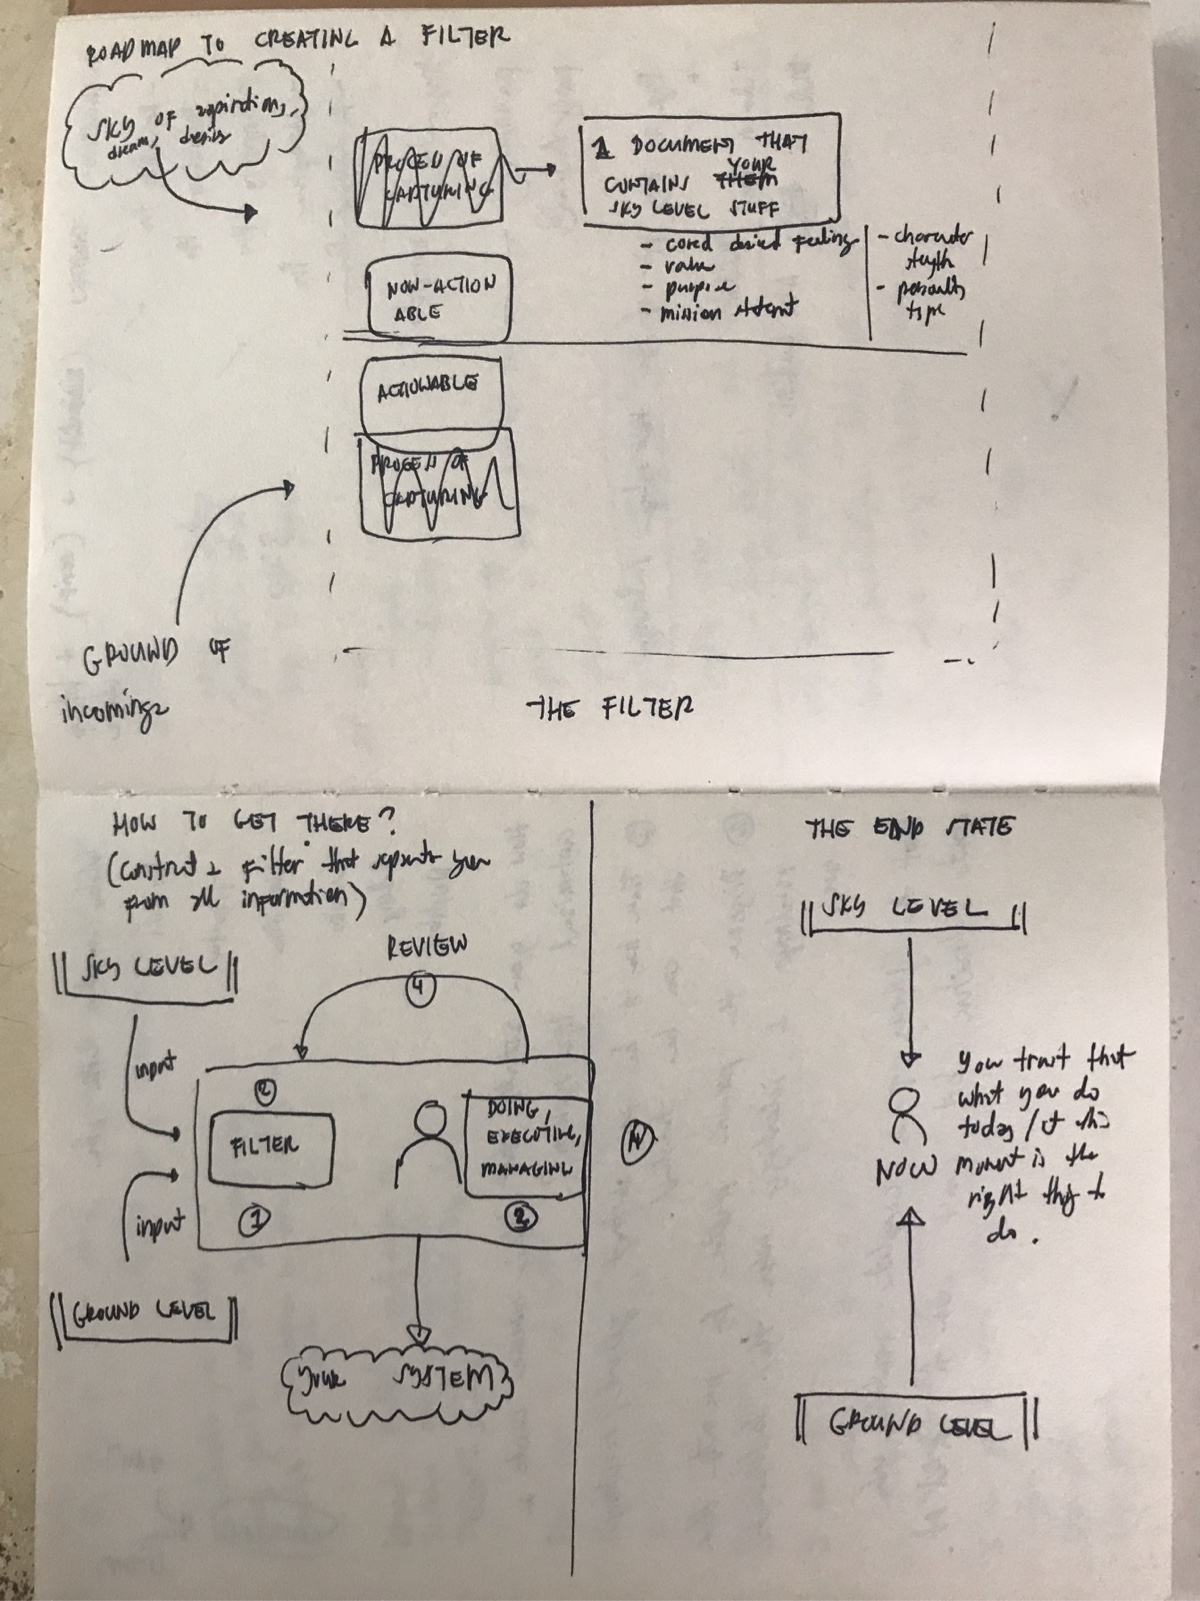 ROADMAP TO CREATING A FILTER
SKY OF aspirations,
dreams, desires
PROCESS OF
CAPTURING
1 DOCUMENT THAT
YOUR
CONTAINS THEM
SKY LEVEL STUFF
- cored desired feeling
- value
- purpose
- mission statement
- character
- personality
type
NON-ACTION
ABLE
ACTIONABLE
PROCESS OF
CAPTURING
GROUND OF
incomings
THE FILTER
HOW TO GET THERE?
(construct a filter that separates you
from all information)
SKY LEVEL
REVIEW
4
input
FILTER
1
DOING,
EXECUTING,
MANAGING
2
input
GROUND LEVEL
YOUR SYSTEM
THE END STATE
SKY LEVEL
You trust that
what you do
today / at this
moment is the
right thing to
do.
NOW
GROUND LEVEL